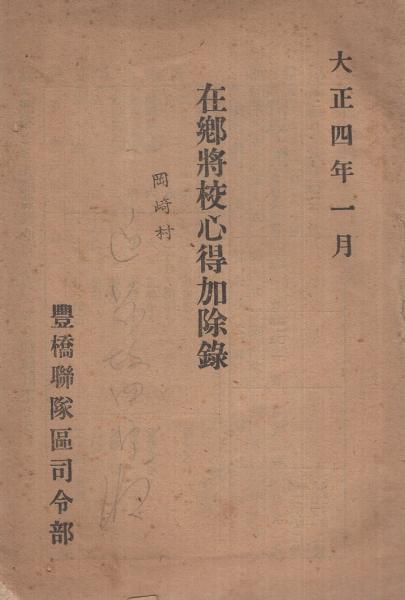 大正四年一月
在鄕將校心得加除錄
岡崎村
豐橋聯隊區司令部